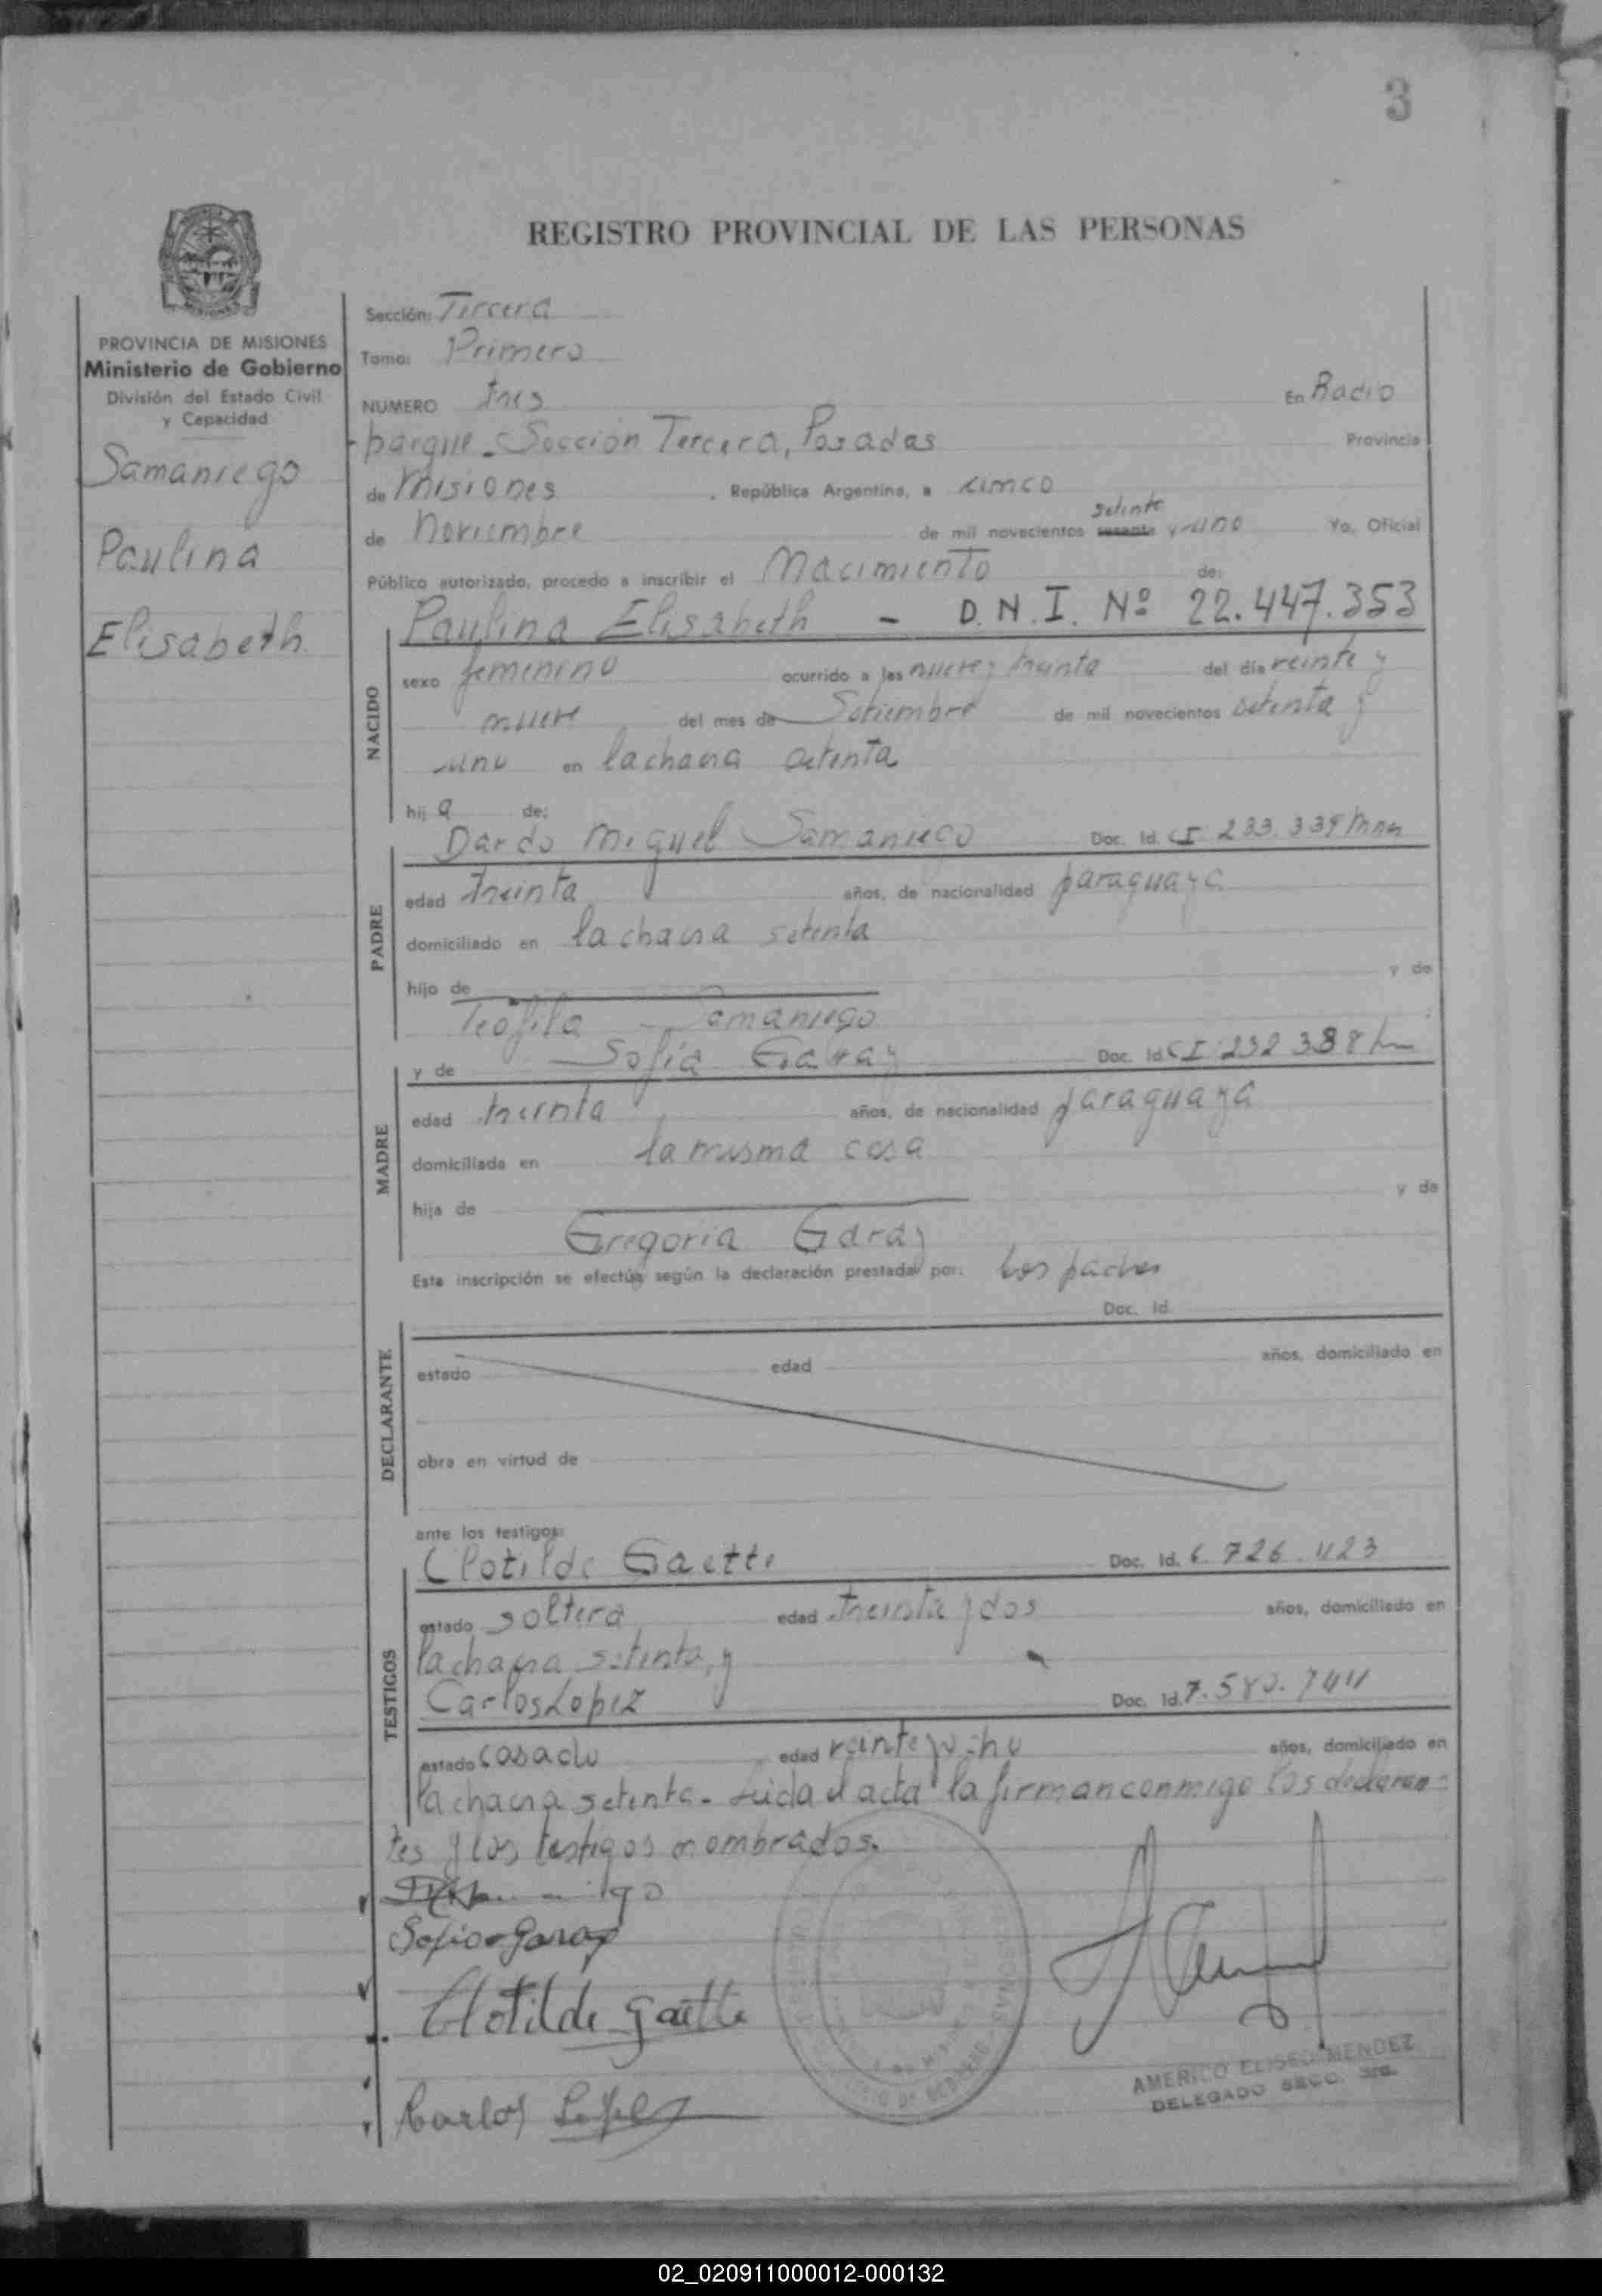 3
REGISTRO PROVINCIAL DE LAS PERSONAS
MISIONES
PROVINCIA DE MISIONES
Ministerio de Gobierno
División del Estado Civil
y Capacidad
Samaniego
Paulina
Elisabeth
Sección: Tercera
Tomo: Primero
NUMERO tres En Radio
parque - Sección Tercera, Posadas Provincia
de Misiones , República Argentina, a cinco
setenta
de Noviembre de mil novecientos sesenta y uno Yo, Oficial
Público autorizado, procedo a inscribir el Nacimiento de:
Paulina Elisabeth - D.N.I. Nº 22.447.353
NACIDO
sexo femenino ocurrido a las nueve y treinta del día veinte y
nueve del mes de Setiembre de mil novecientos setenta y
uno en la chacra setenta
hij a de:
Dardo Miguel Samaniego Doc. Id. CI 233.339
PADRE
edad treinta años, de nacionalidad paraguaya
domiciliado en la chacra setenta
hijo de y de
Teófila Samaniego
y de Sofia Garay Doc. Id. CI 232 388
MADRE
edad treinta años, de nacionalidad paraguaya
domiciliada en la misma casa
hija de y de
Gregoria Garay
Este inscripción se efectúa según la declaración prestada por: los padres
Doc. Id.
DECLARANTE
estado edad años, domiciliado en
obra en virtud de
ante los testigos:
Clotilde Gaetti Doc. Id. 6.726.423
TESTIGOS
estado soltera edad treinta y dos años, domiciliado en
la chacra setenta, y
Carlos Lopez Doc. Id. 7.580.744
estado casado edad veinte y ocho años, domiciliado en
la chacra setenta - Leida el acta la firman conmigo los declaran-
tes y los testigos nombrados.
Sofia Garay
Clotilde Gaetti
Carlos Lopez
AMERICO ELISEO MENDEZ
DELEGADO SECC. 3ra.
02_020911000012-000132